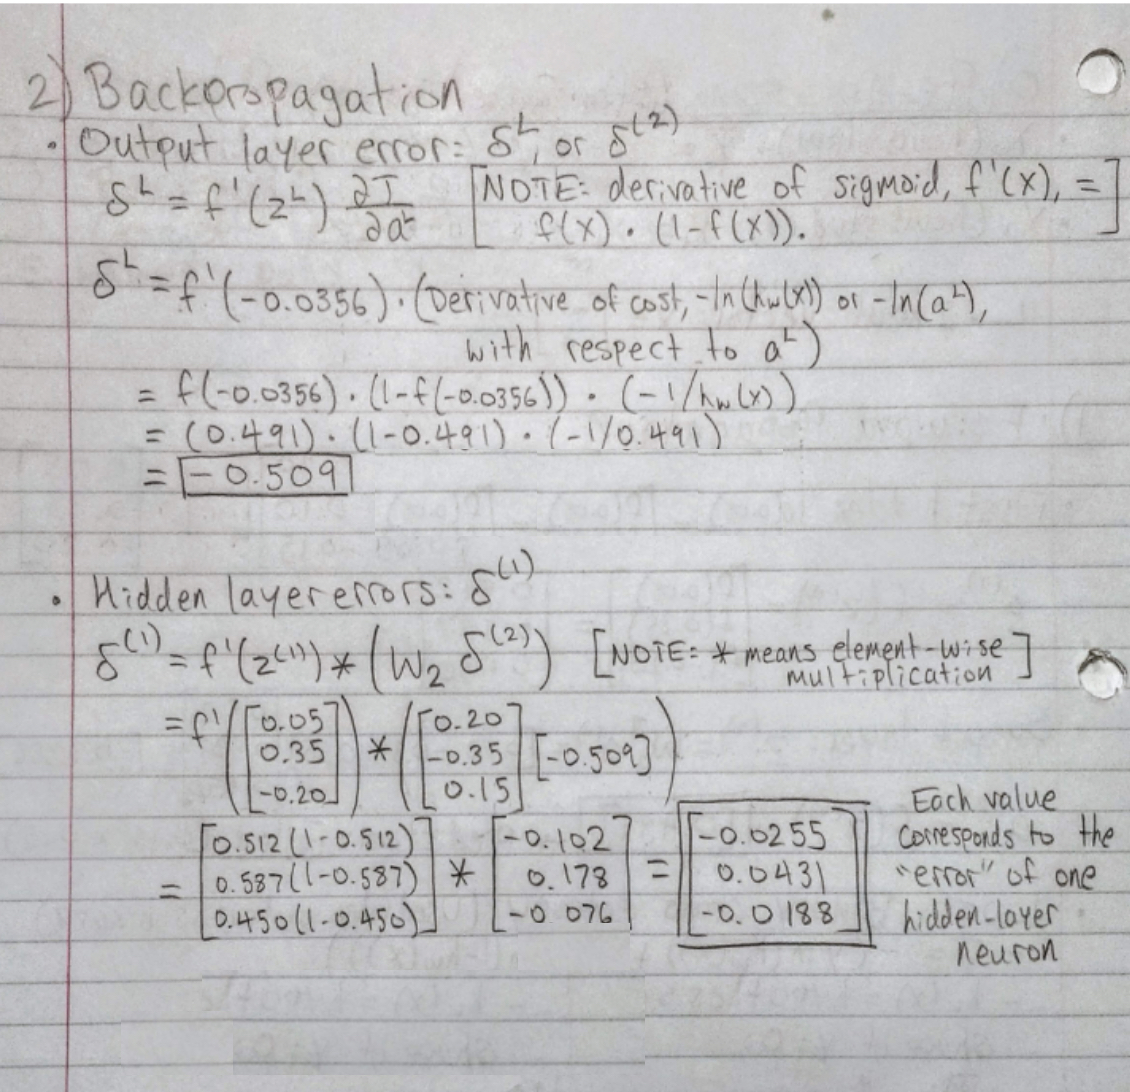 2) Backpropagation
• Output layer error: δᴸ, or δ⁽²⁾
δᴸ = f'(zᴸ) ∂J/∂aᴸ [NOTE: derivative of sigmoid, f'(x), =
f(x) · (1-f(x)).]
δᴸ = f'(-0.0356) · (Derivative of cost, -ln(hw(x)) or -ln(aᴸ),
with respect to aᴸ)
= f(-0.0356) · (1-f(-0.0356)) · (-1/hw(x))
= (0.491) · (1-0.491) · (-1/0.491)
= -0.509
• Hidden layer errors: δ⁽¹⁾
δ⁽¹⁾ = f'(z⁽¹⁾) * (W₂ δ⁽²⁾) [NOTE: * means element-wise
multiplication]
= f'([0.05 0.35 -0.20]) * ([0.20 -0.35 0.15] [-0.509])
= [0.512(1-0.512) 0.587(1-0.587) 0.450(1-0.450)] * [-0.102 0.178 -0.076] = [-0.0255 0.0431 -0.0188]
Each value
corresponds to the
"error" of one
hidden-layer
neuron